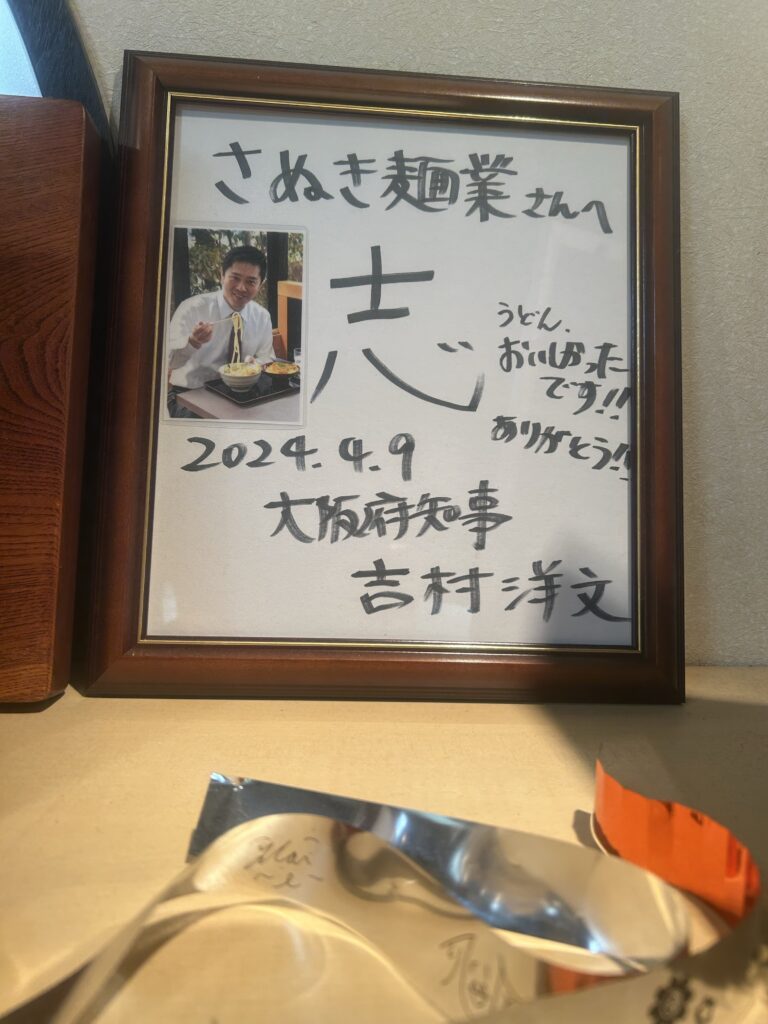 さぬき麺業さんへ
志
うどん、
おいしかった
です!!
ありがとう!!
2024.4.9
大阪府知事
吉村洋文